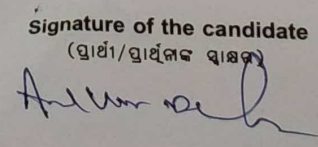 Signature of the candidate
(ପ୍ରାର୍ଥୀ/ପ୍ରାର୍ଥିନୀଙ୍କ ସ୍ୱାକ୍ଷର)